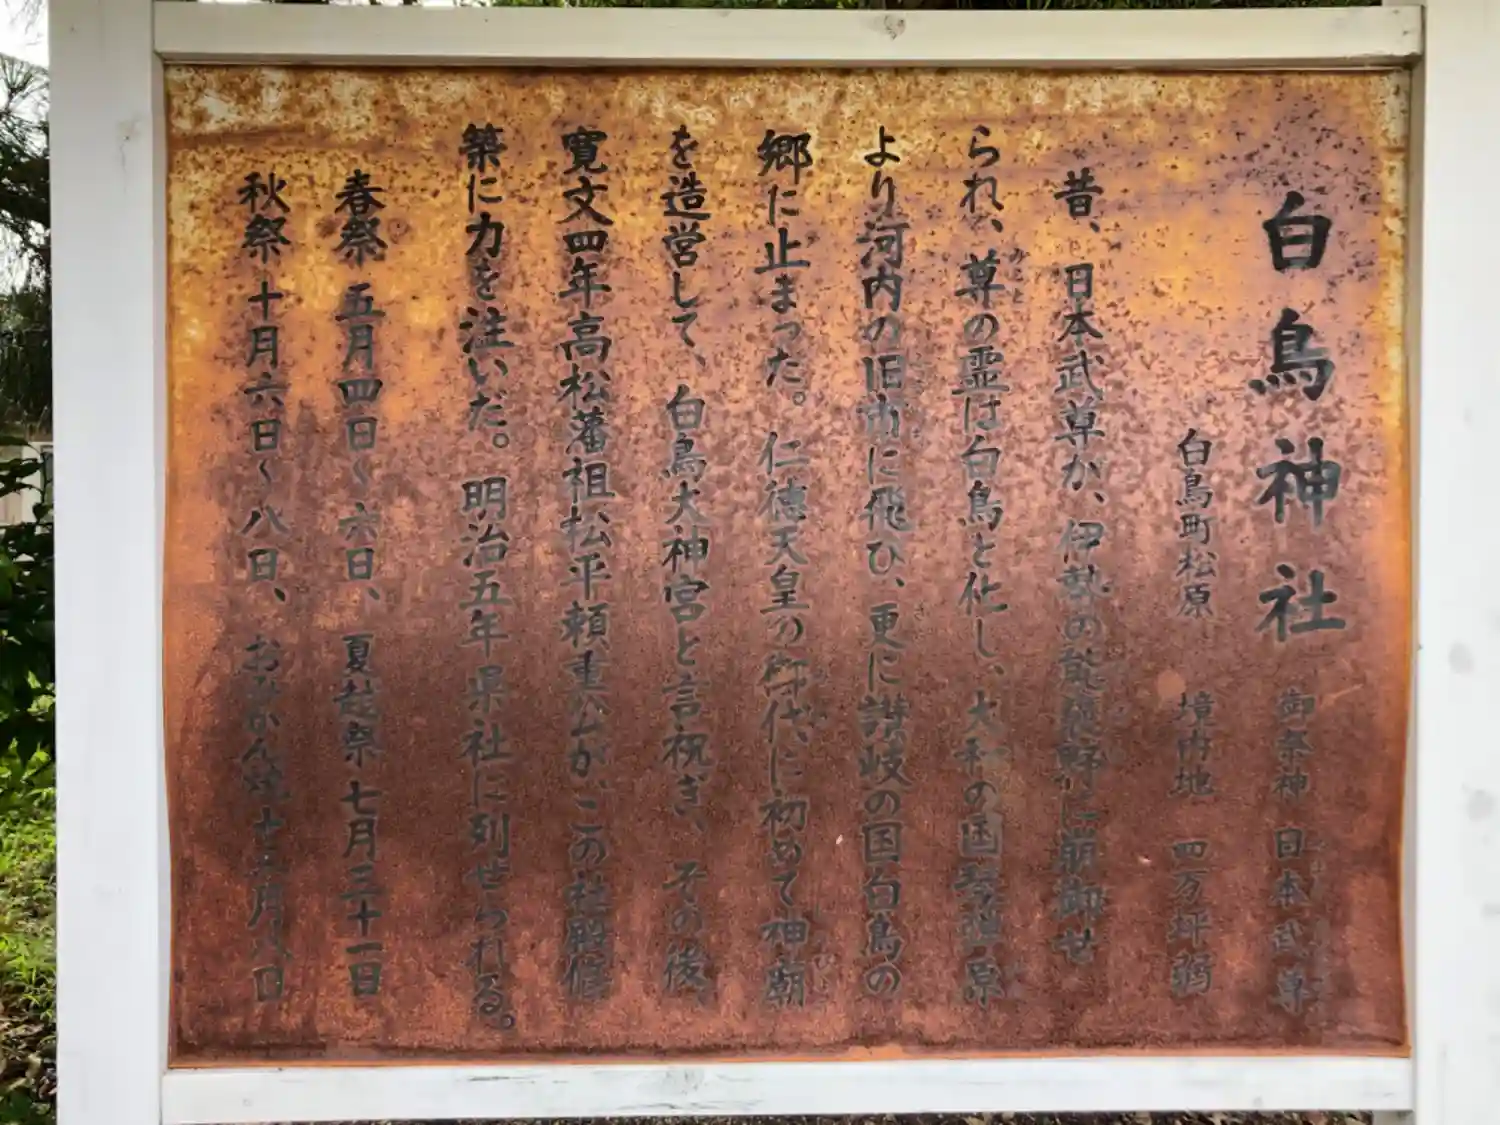 白鳥神社 御祭神 日本武尊
白鳥町松原 境内地 四万坪弱
昔、日本武尊が、伊勢の能褒野に崩御せ
られ、尊の霊は白鳥と化し、大和の国琴弾原
みこと
より河内の旧市に飛び、更に讃岐の国白鳥の
郷に止まった。仁徳天皇の御代に初めて神廟
を造営して、白鳥大神宮と言祝ぎ、その後、
寛文四年高松藩祖松平頼重公が、この社殿修
築に力を注いだ。明治五年県社に列せられる。
春祭 五月四日〜六日、夏越祭 七月三十一日
秋祭 十月六日〜八日、おみかん焼 十二月八日